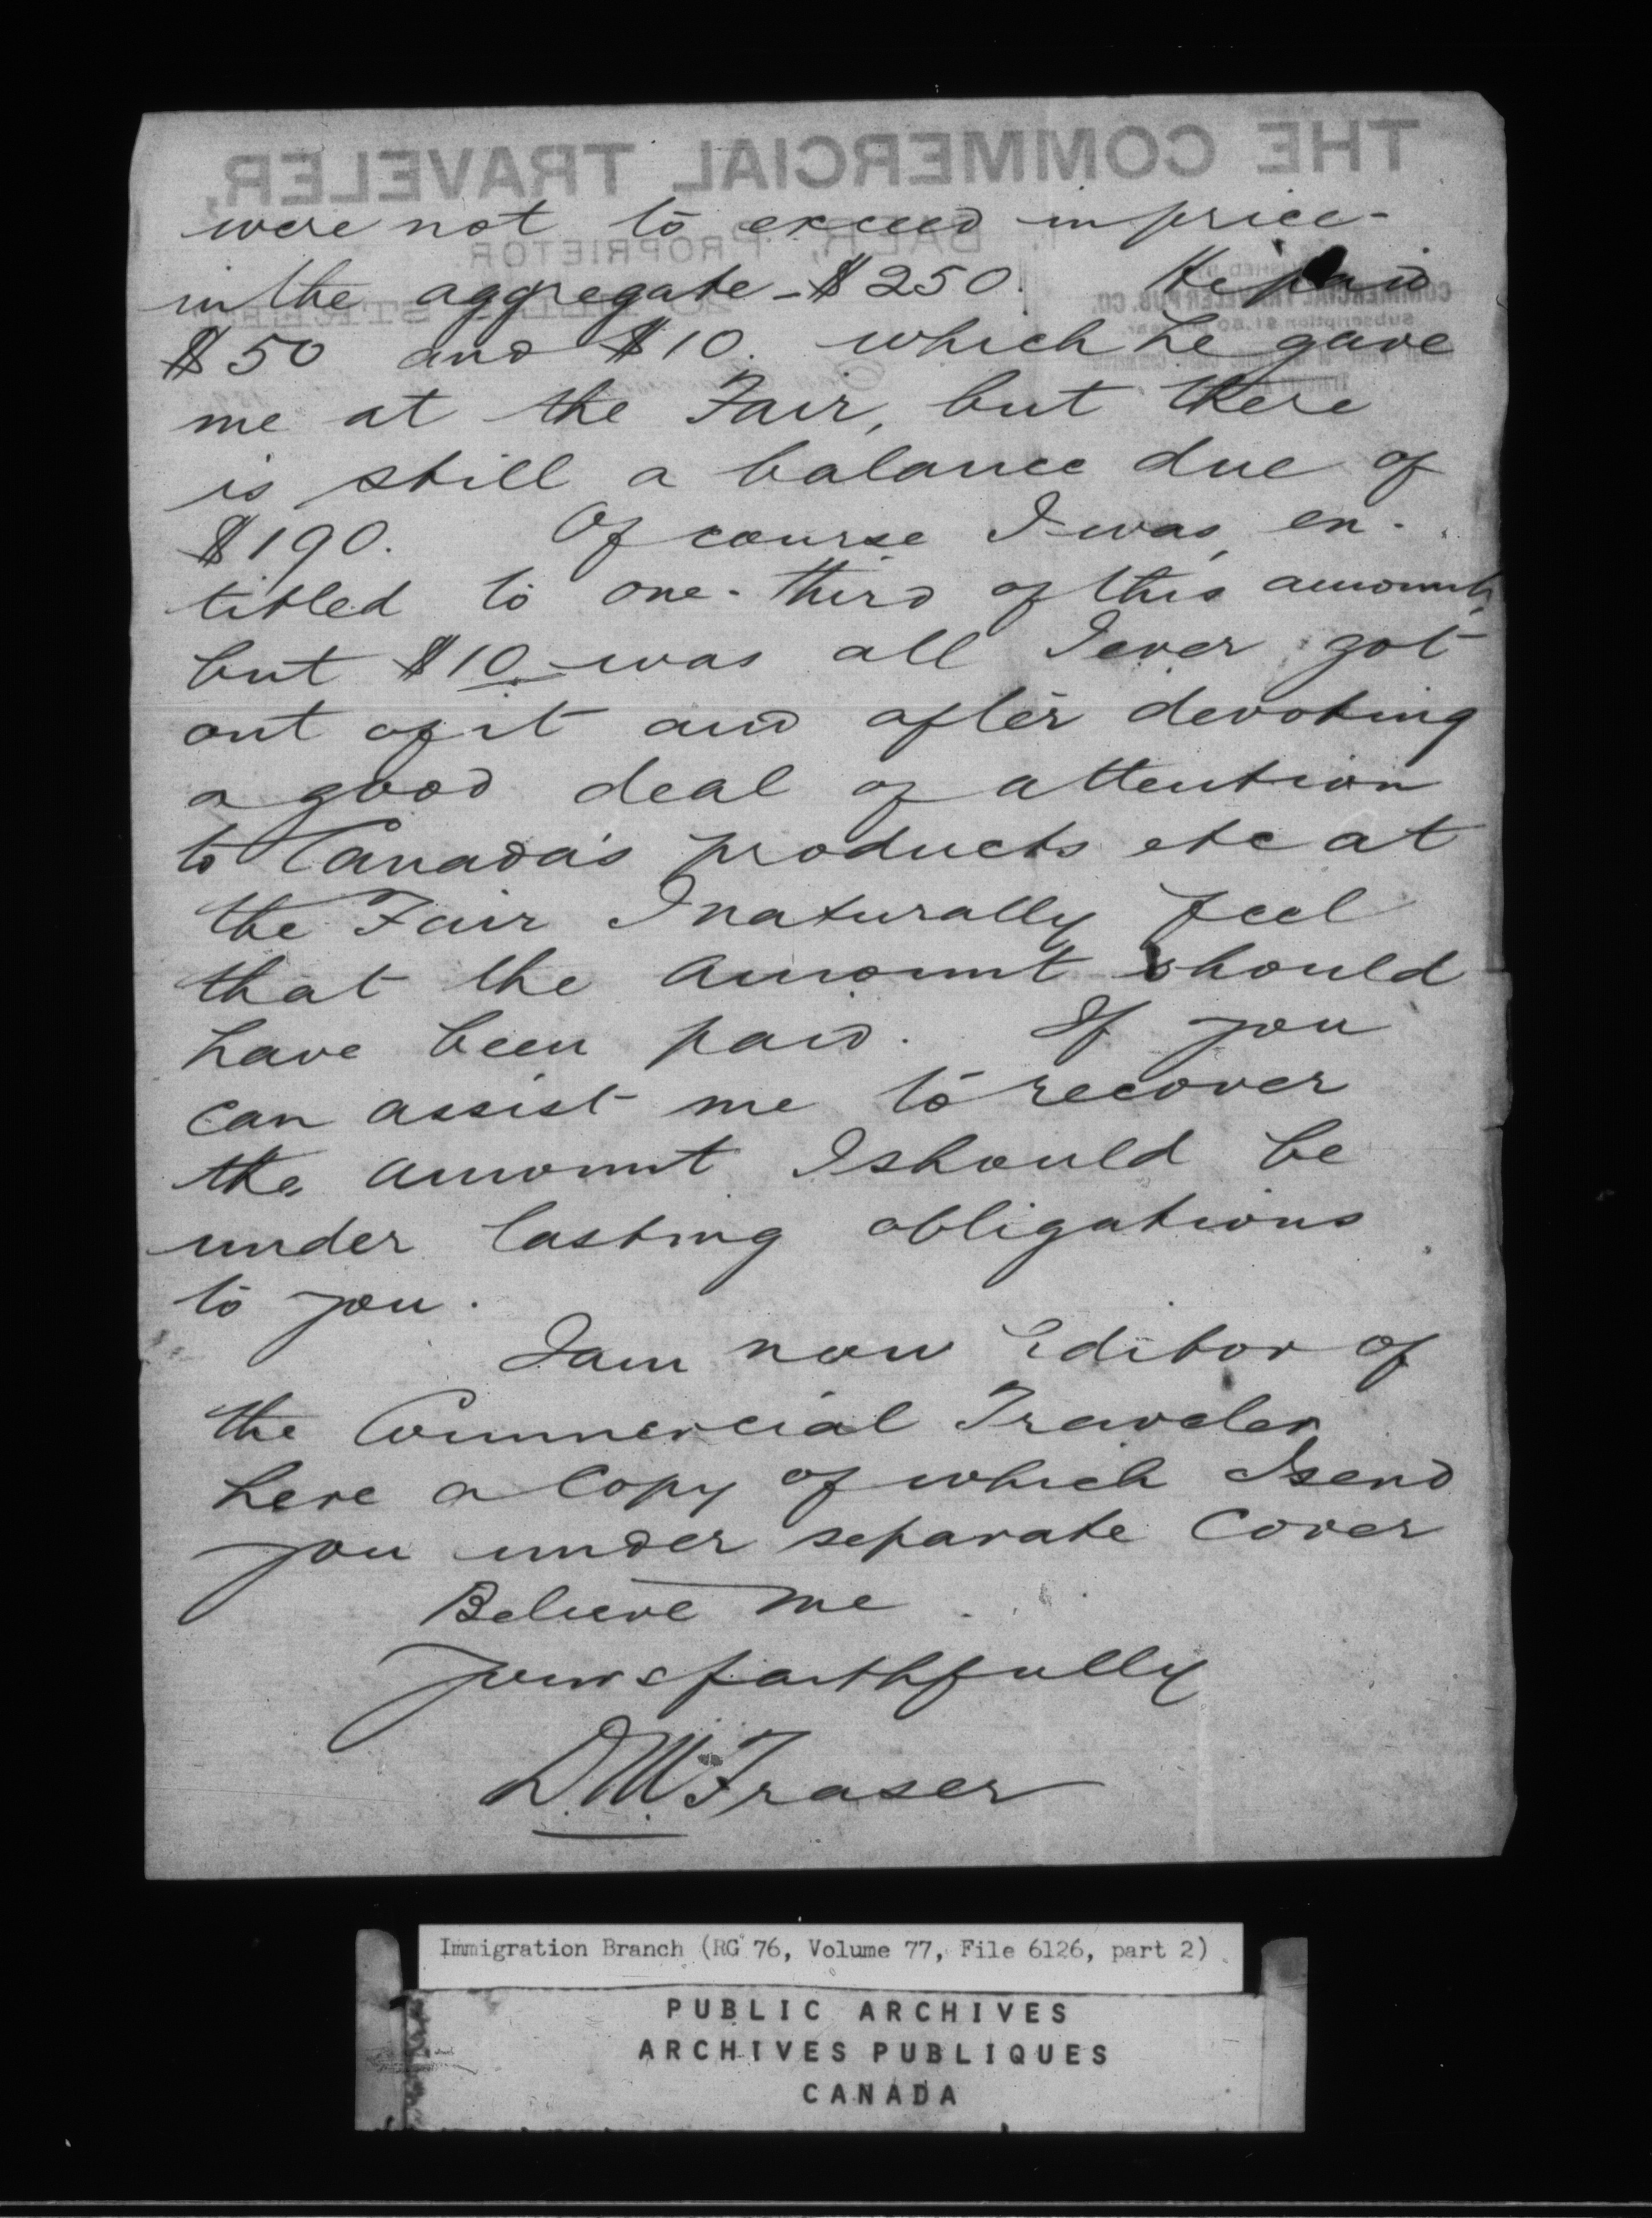 THE COMMERCIAL TRAVELER,
BAER, PROPRIETOR
COMMERCIAL TRAVELER PUB. CO.
Subscription $1.50
were not to exceed in price-
in the aggregate - $250. He paid
$50 and $10. which he gave
me at the Fair, but there
is still a balance due of
$190. Of course I was en-
titled to one-third of this amount,
but $10 was all I ever got
out of it and after devoting
a good deal of attention
to Canada's products etc at
the Fair I naturally feel
that the amount should
have been paid. If you
can assist me to recover
the amount I should be
under lasting obligations
to you.
I am now Editor of
the Commercial Traveler
here a Copy of which I send
you under separate Cover
Believe me
yours faithfully
D.M. Fraser
Immigration Branch (RG 76, Volume 77, File 6126, part 2)
PUBLIC ARCHIVES
ARCHIVES PUBLIQUES
CANADA